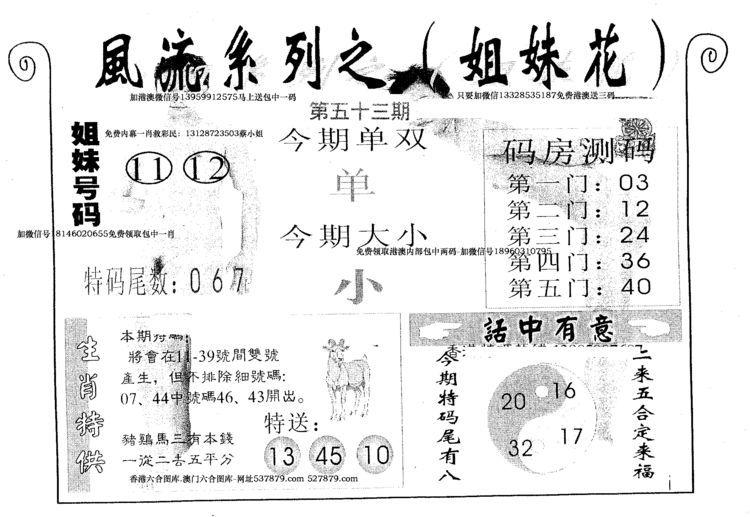 風流系列之（姐妹花）
加港澳微信号13959912575马上送包中一码
只要加微信13328535187免费港澳送三码
第五十三期
姐妹号码
免费内幕一肖救彩民：13128723503蔡小姐
11 12
加微信号18146020655免费领取包中一肖
特码尾数：067
今期单双
单
今期大小
免费领取港澳内部包中两码-加微信号18960310795
小
码房测码
第一门：03
第二门：12
第三门：24
第四门：36
第五门：40
生肖特供
本期特碼：
將會在11-39號間雙號
產生，但不排除細號碼：
07、44中號碼46、43開出。
豬鷄馬三有本錢
一從二去五平分
特送：
13 45 10
香港六合图库-澳门六合图库-网址537879.com 527879.com
話中有意
今期特码尾有八
20 16
32 17
二来五合定来福